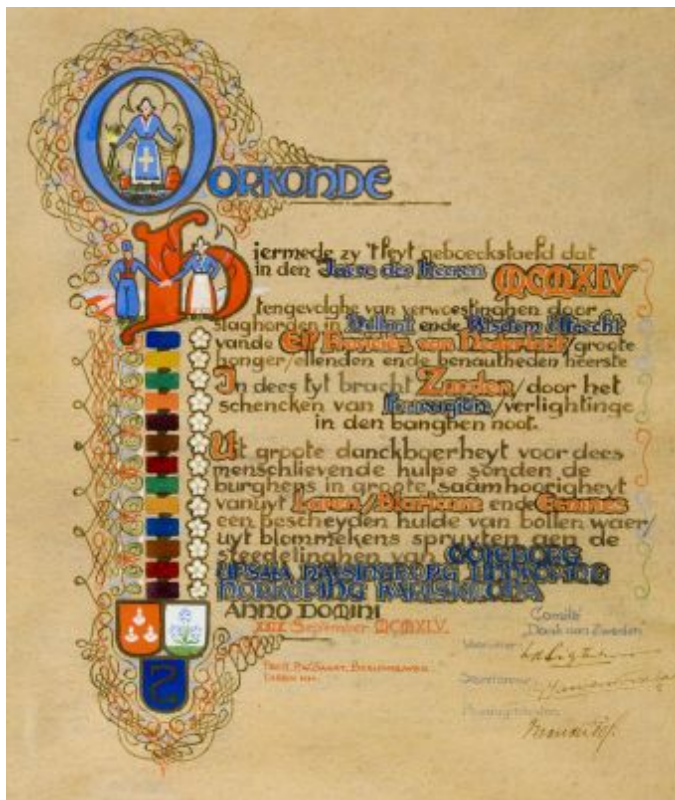 OORKONDE
Hiermede zy 't feyt geboeckstaefd dat
in den Jaere des Heeren MCMXLV
tengevolghe van verwoestinghen door
slaghorden in Holland ende Bisdom Utrecht
vande Elf Provinciën van Nederland/groote
honger/ellenden ende benautheden heerste
In dees tyt bracht Zweden/door het
schencken van /verlightinge
in den banghen noot.
Uit groote danckbaerheyt voor dees
menschlievende hulpe sonden de
burghers in groote saamhoorigheyt
vanuyt Laren/Blaricum ende Eemnes
een bescheyden hulde van bollen waer/
uyt blommekens spruyten aen de
steedelinghen van GÖTEBORG
UPSALA HÄLSINGBORG LINKÖPING
NORRKÖPING KARLSKRONA
ANNO DOMINI
September MCMXLV.
Comité
"Dank aan Zweden"
Voorzitter:
Secretaresse:
S